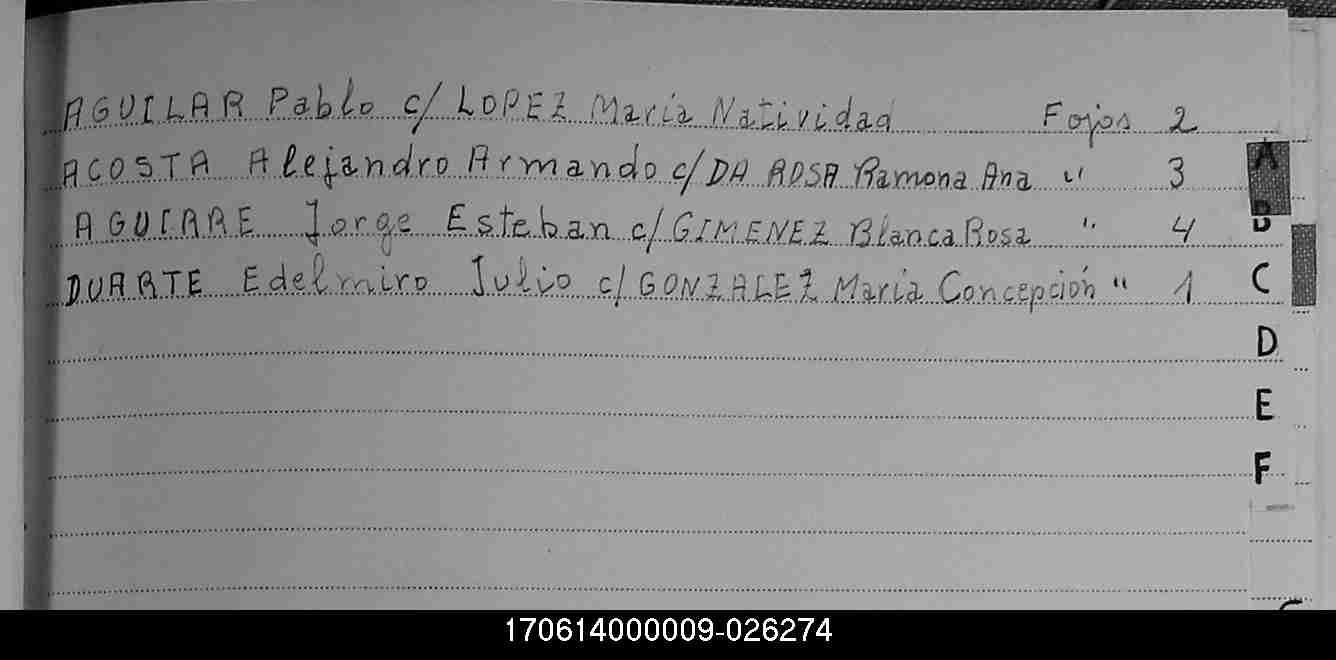 AGUILAR Pablo c/ LOPEZ María Natividad Fojos 2
ACOSTA Alejandro Armando c/ DA ROSA Ramona Ana " 3
AGUIARE Jorge Esteban c/ GIMENEZ Blanca Rosa " 4
DUARTE Edelmiro Julio c/ GONZALEZ María Concepción " 1
A
B
C
D
E
F
170614000009-026274